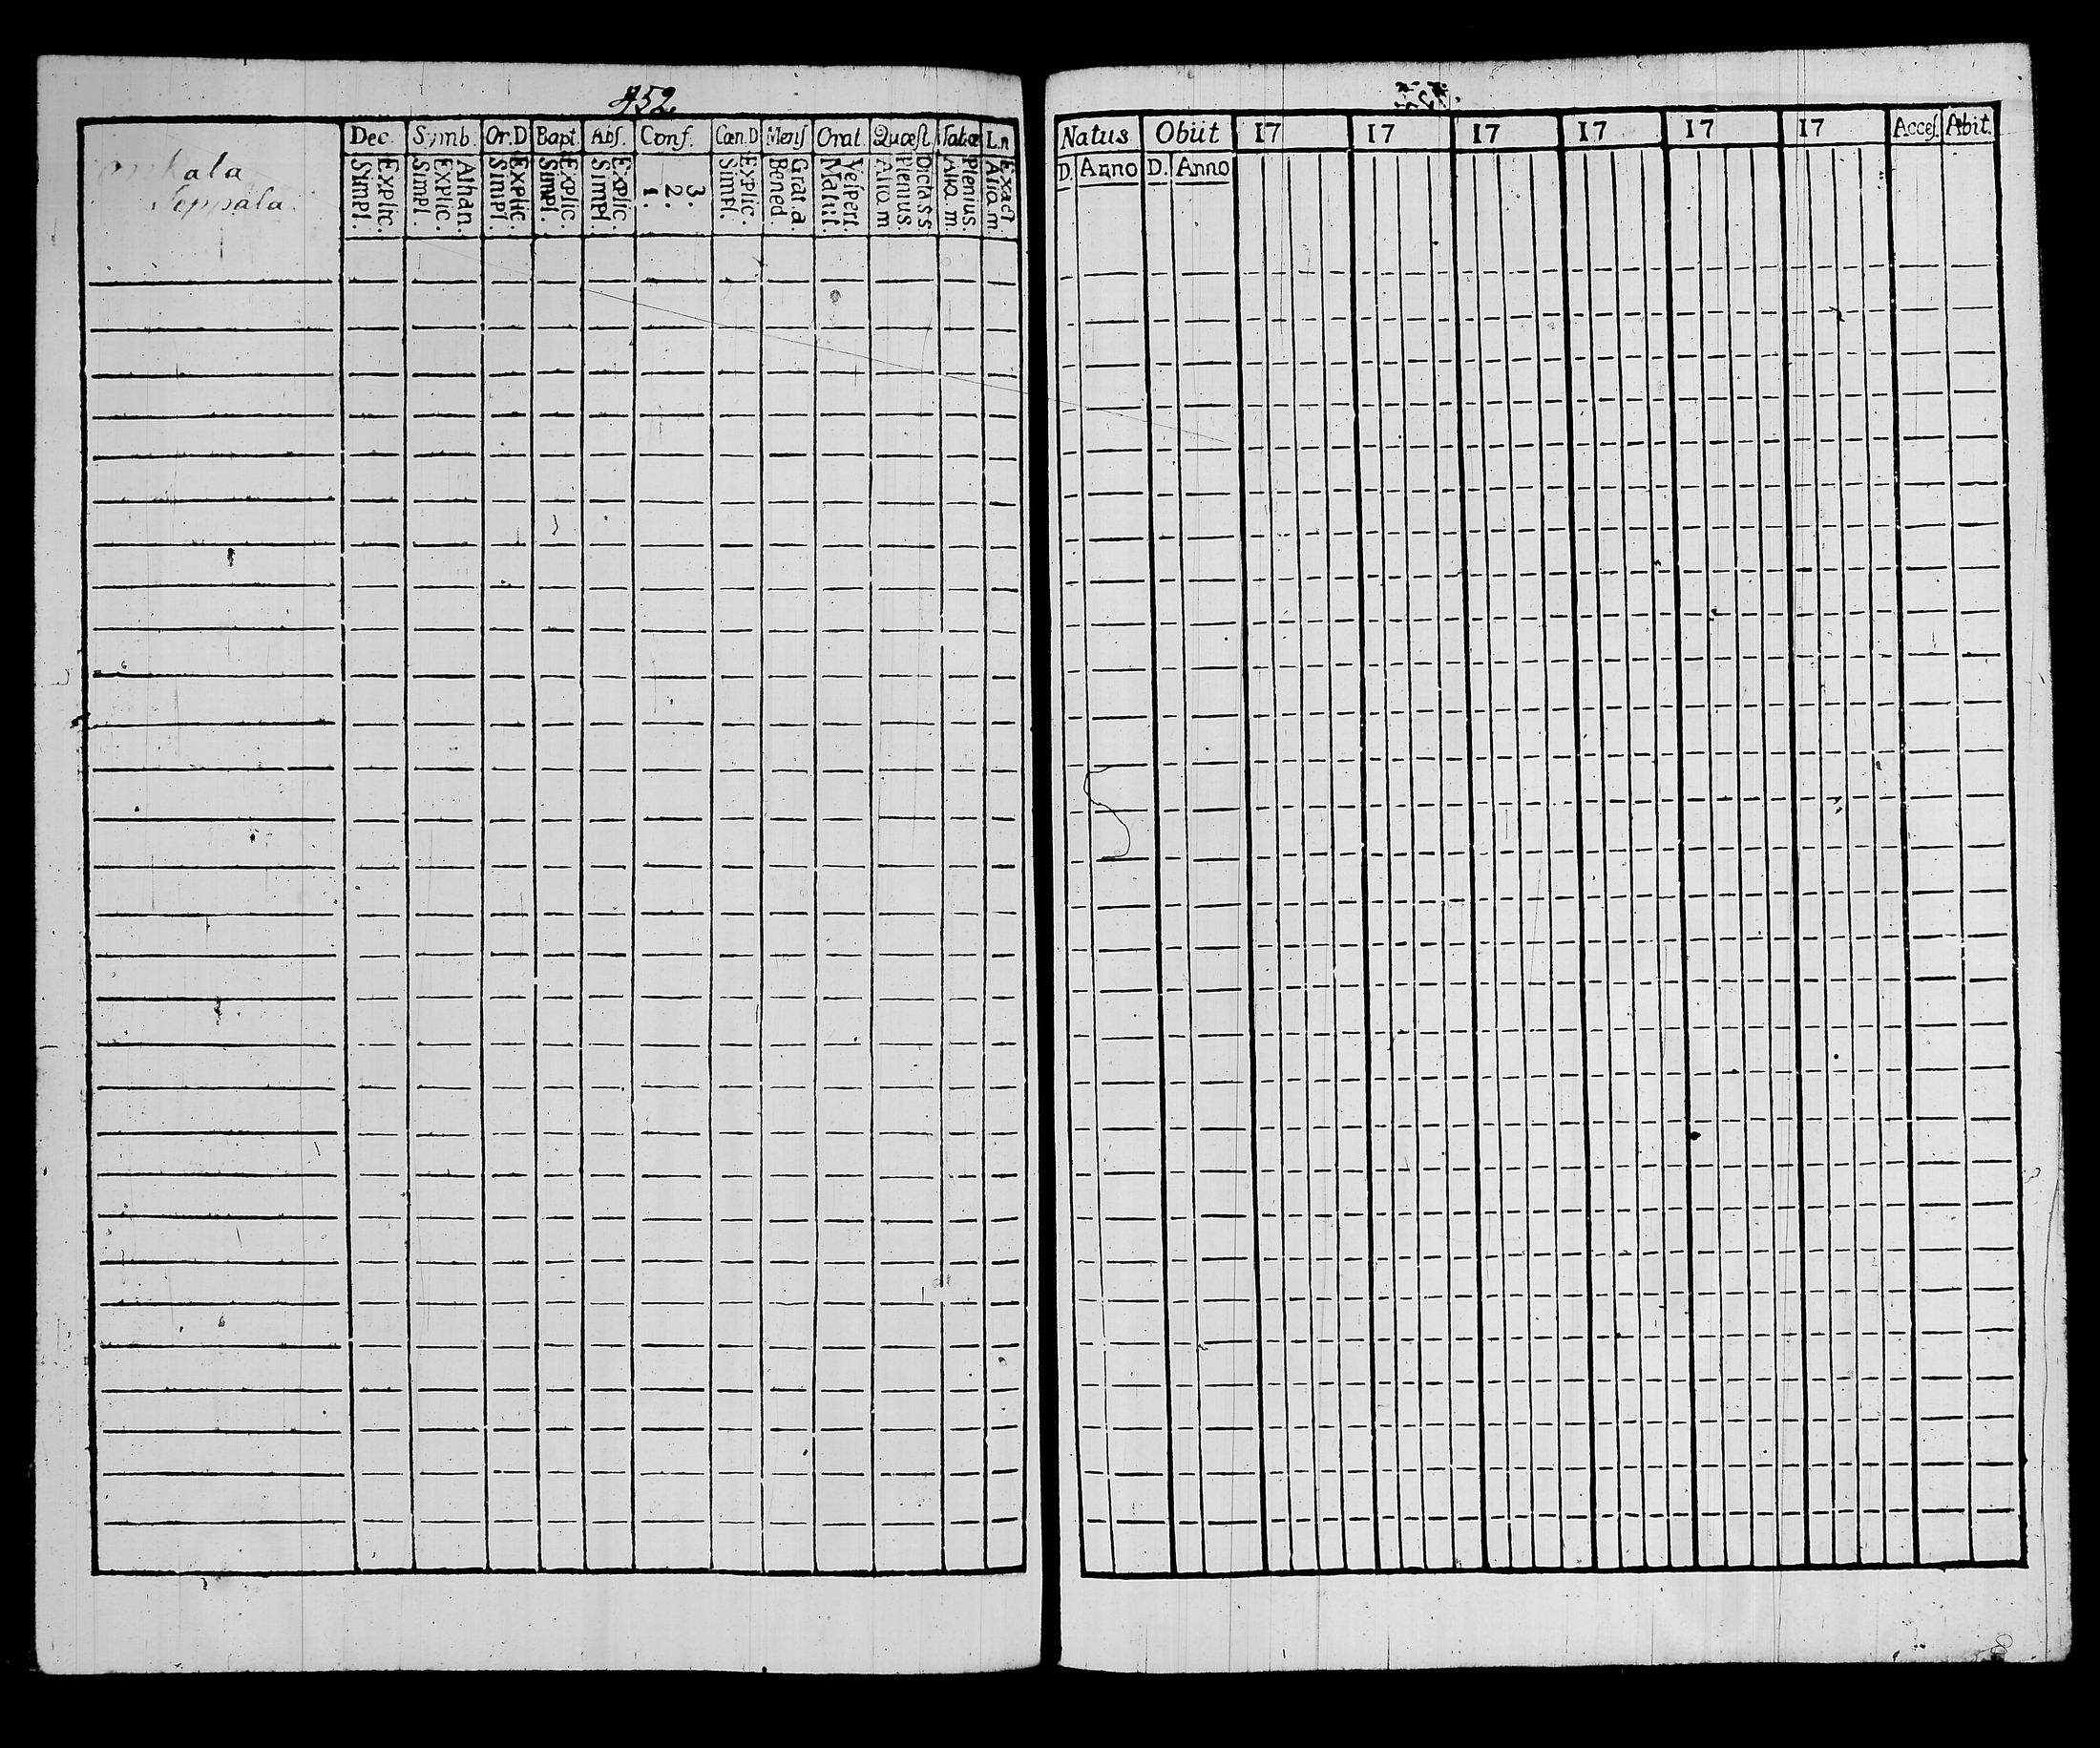 452.
Dec. Symb. Or.D Bapt. Abſ. Conf. Cœn.D Menſ Orat. Quœſt. Tabœ L.n
Explic. Simpl. Athan. Explic. Simpl. Explic. Simpl. Explic. Simpl. Explic. Simpl. 3. 2. 1. Explic. Simpl. Grat.a. Bened. Veſpert. Matut. Dicta.S.S. Plenius. Alio.m Plenius. Alio.m. Exact. Alio.m.
Seppala.
Natus Obiit 17 17 17 17 17 17 Acceſ. Abit.
D. Anno D. Anno